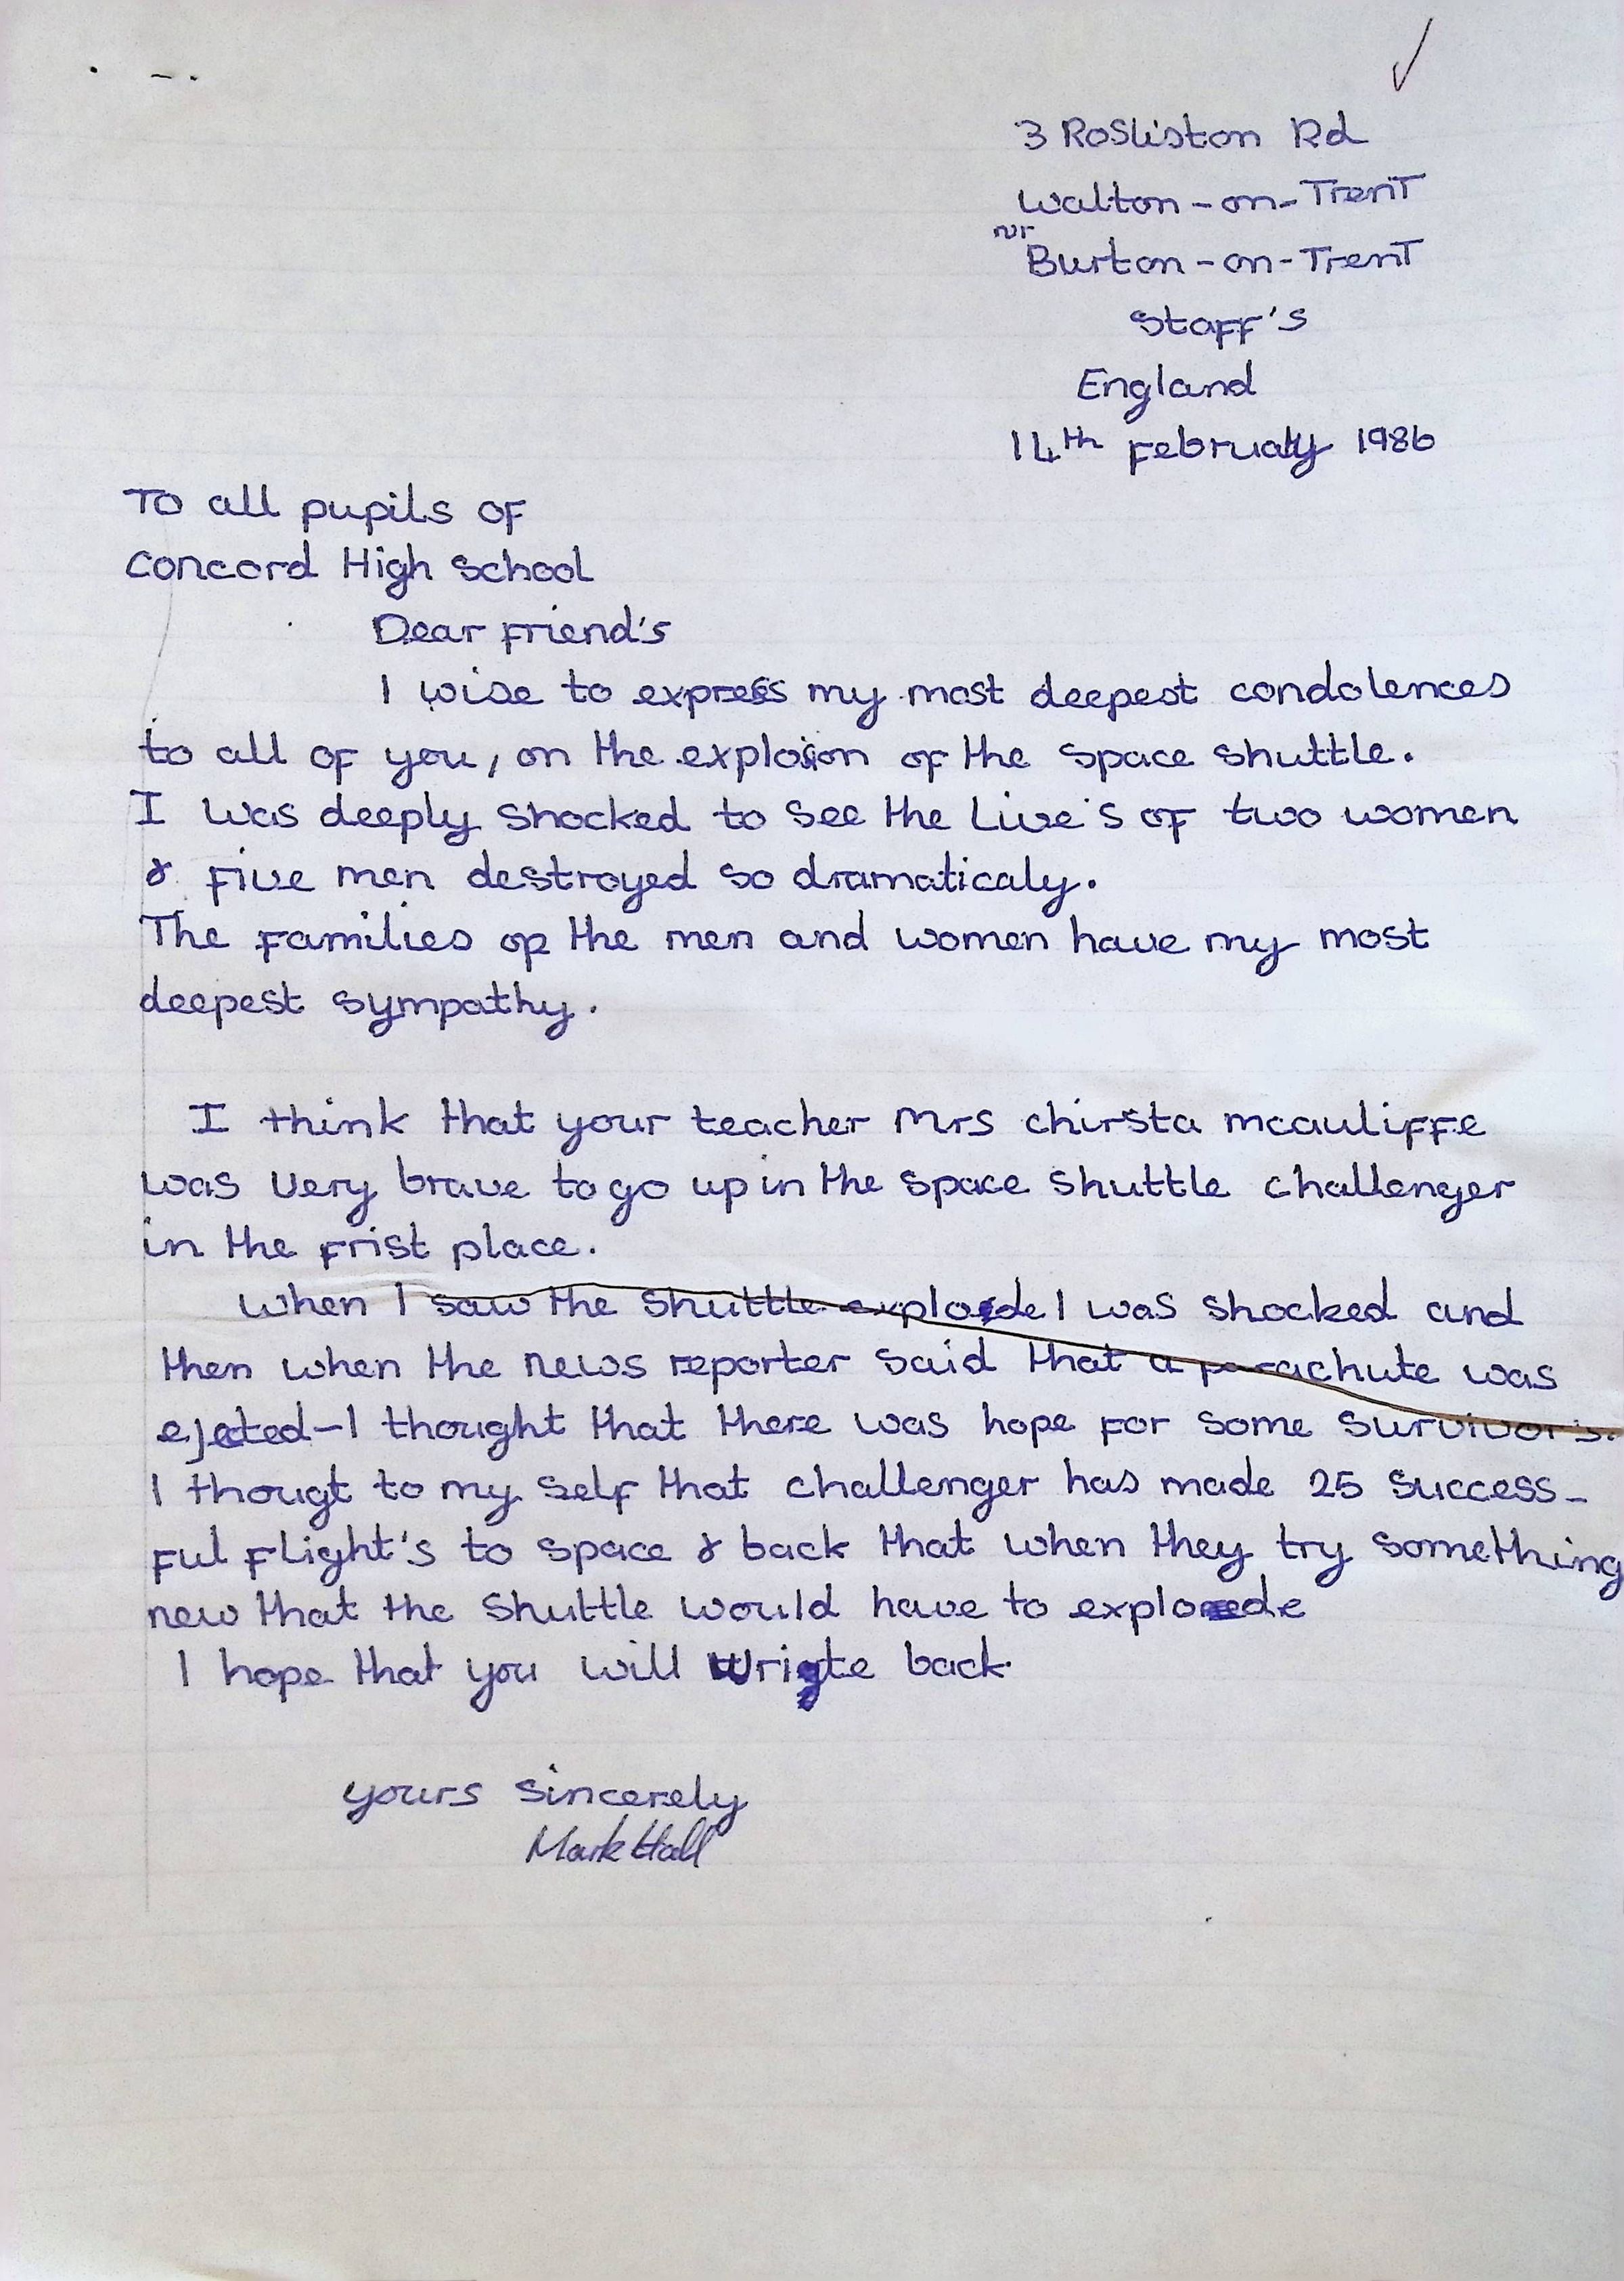 3 Rosliston Rd
Walton-on-Trent
nr
Burton-on-Trent
Staff's
England
14th February 1986
To all pupils of
Concord High School
Dear Friend's
I wise to express my most deepest condolences
to all of you, on the explosion of the space shuttle.
I was deeply shocked to see the Live's of two women
& five men destroyed so dramaticaly.
The families op the men and women have my most
deepest sympathy.
I think that your teacher Mrs chirsta mcauliffe
was very brave to go up in the space shuttle challenger
in the frist place.
When I saw the shuttle explode I was shocked and
then when the news reporter said that a parachute was
ejected-I thought that there was hope for some survivors.
I thougt to my self that challenger has made 25 success-
ful flight's to space & back that when they try something
new that the shuttle would have to explode
I hope that you will write back.
yours sincerely
Mark Hall